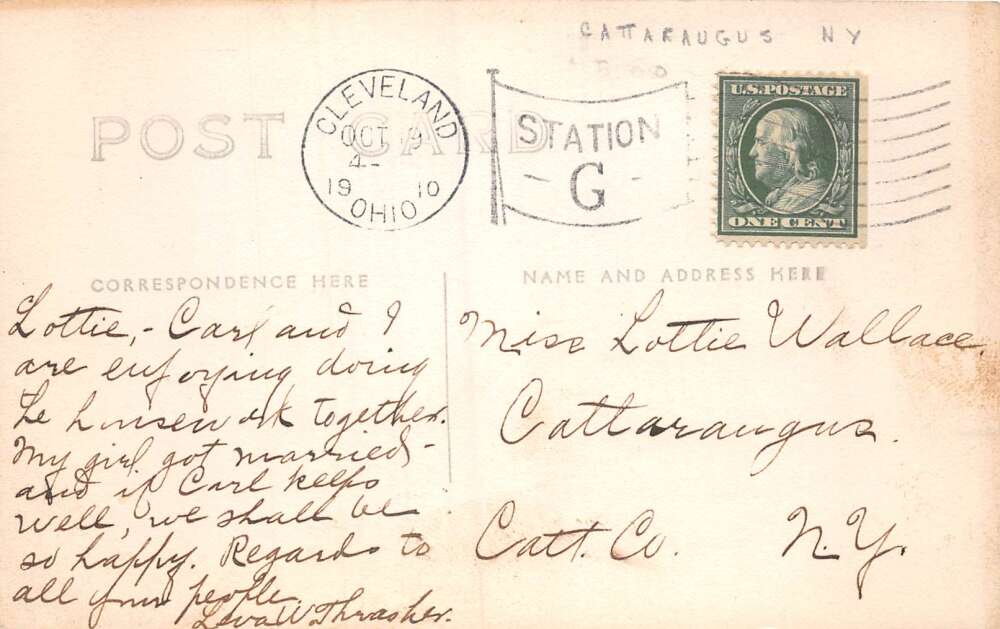 CATTARAUGUS NY
POST CARD
CLEVELAND
OCT 9
4-
19 10
OHIO
STATION
- G -
U.S. POSTAGE
ONE CENT
CORRESPONDENCE HERE
NAME AND ADDRESS HERE
Lottie, - Carl and I
are enjoying doing
he housework together.
My girl got married -
and if Carl keeps
well, we shall be
so happy. Regards to
all your people.
W Thrasher.
Miss Lottie Wallace.
Cattaraugus.
Catt. Co. N.Y.